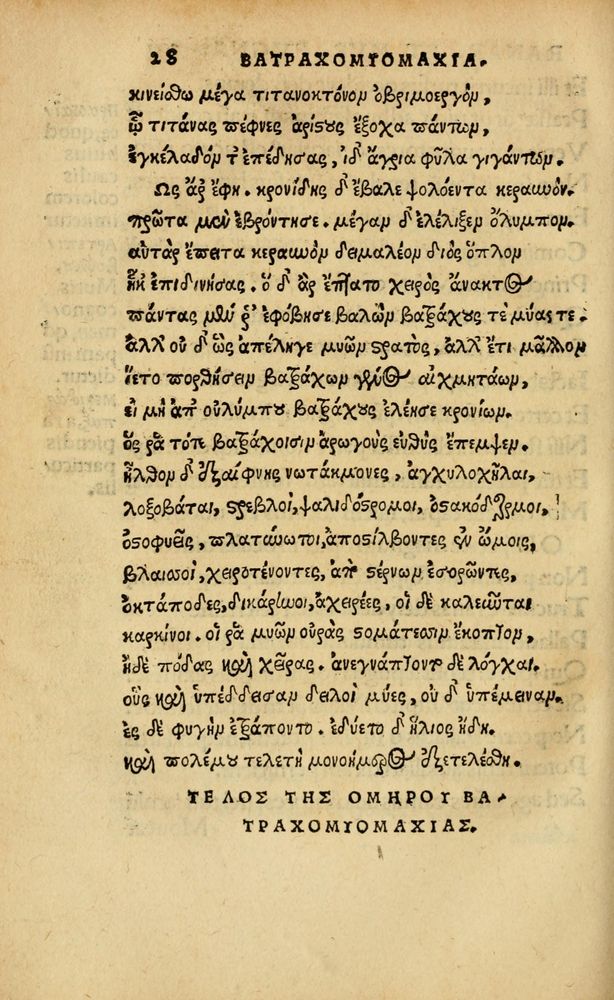 28 ΒΑΤΡΑΧΟΜΥΟΜΑΧΙΑ.
κινείσθω μέγα τιτανοκτόνον ὀβριμοεργόν,
ᾧ τιτάνας πέφνες ἀρίστους ἔξοχα πάντων,
ἐγκέλαδόν τ' ἐπέδησας, ἰδ' ἄγρια φῦλα γιγάντων.
Ως ἄρ' ἔφη. κρονίδης δ' ἔβαλε ψολόεντα κεραυνόν.
πρῶτα μὲν ἐβρόντησε. μέγαν δ' ἐλέλιξεν ὄλυμπον.
αὐτὰρ ἔπειτα κεραυνὸν δειμαλέον διὸς ὅπλον
ἧκ' ἐπιδινήσας. ὁ δ' ἄρ' ἔπτατο χειρὸς ἄνακτος
πάντας μὲν ῥ' ἐφόβησε βαλὼν βατράχους τε μύας τε.
ἀλλ' οὐ δ' ὣς ἀπέληγε μυῶν στρατὸς, ἀλλ' ἔτι μᾶλλον
ἵετο πορθήσειν βατράχων γένος αἰχμητάων,
εἰ μὴ ἀπ' οὐλύμπου βατράχους ἐλέησε κρονίων.
ὅς ῥα τότε βατράχοισιν ἀρωγοὺς εὐθὺς ἔπεμψεν.
ἦλθον δ' ἐξαίφνης νωτάκμονες, ἀγκυλοχῆλαι,
λοξοβάται, στρεβλοὶ, ψαλιδόστομοι, ὀστρακόδερμοι,
ὀστοφυεῖς, πλατύνωτοι, ἀποστίλβοντες ἐν ὤμοις,
βλαισοὶ, χειροτένοντες, ἀπὸ στέρνων ἐσορῶντες,
ὀκτάποδες, δικάρηνοι, ἀχειρέες, οἱ δὲ καλεῦνται
καρκίνοι. οἵ ῥα μυῶν οὐρὰς στομάτεσσιν ἔκοπτον,
ἠδὲ πόδας καὶ χεῖρας. ἀνεγνάμπτοντο δὲ λόγχαι.
οὓς καὶ ὑπέδδεισαν δειλοὶ μύες, οὐ δ' ὑπέμειναν.
ἐς δὲ φυγὴν ἐτράποντο. ἐδύετο δ' ἥλιος ἤδη.
καὶ πολέμου τελετὴ μονοήμερος ἐξετελέσθη.
ΤΕΛΟΣ ΤΗΣ ΟΜΗΡΟΥ ΒΑ
ΤΡΑΧΟΜΥΟΜΑΧΙΑΣ.